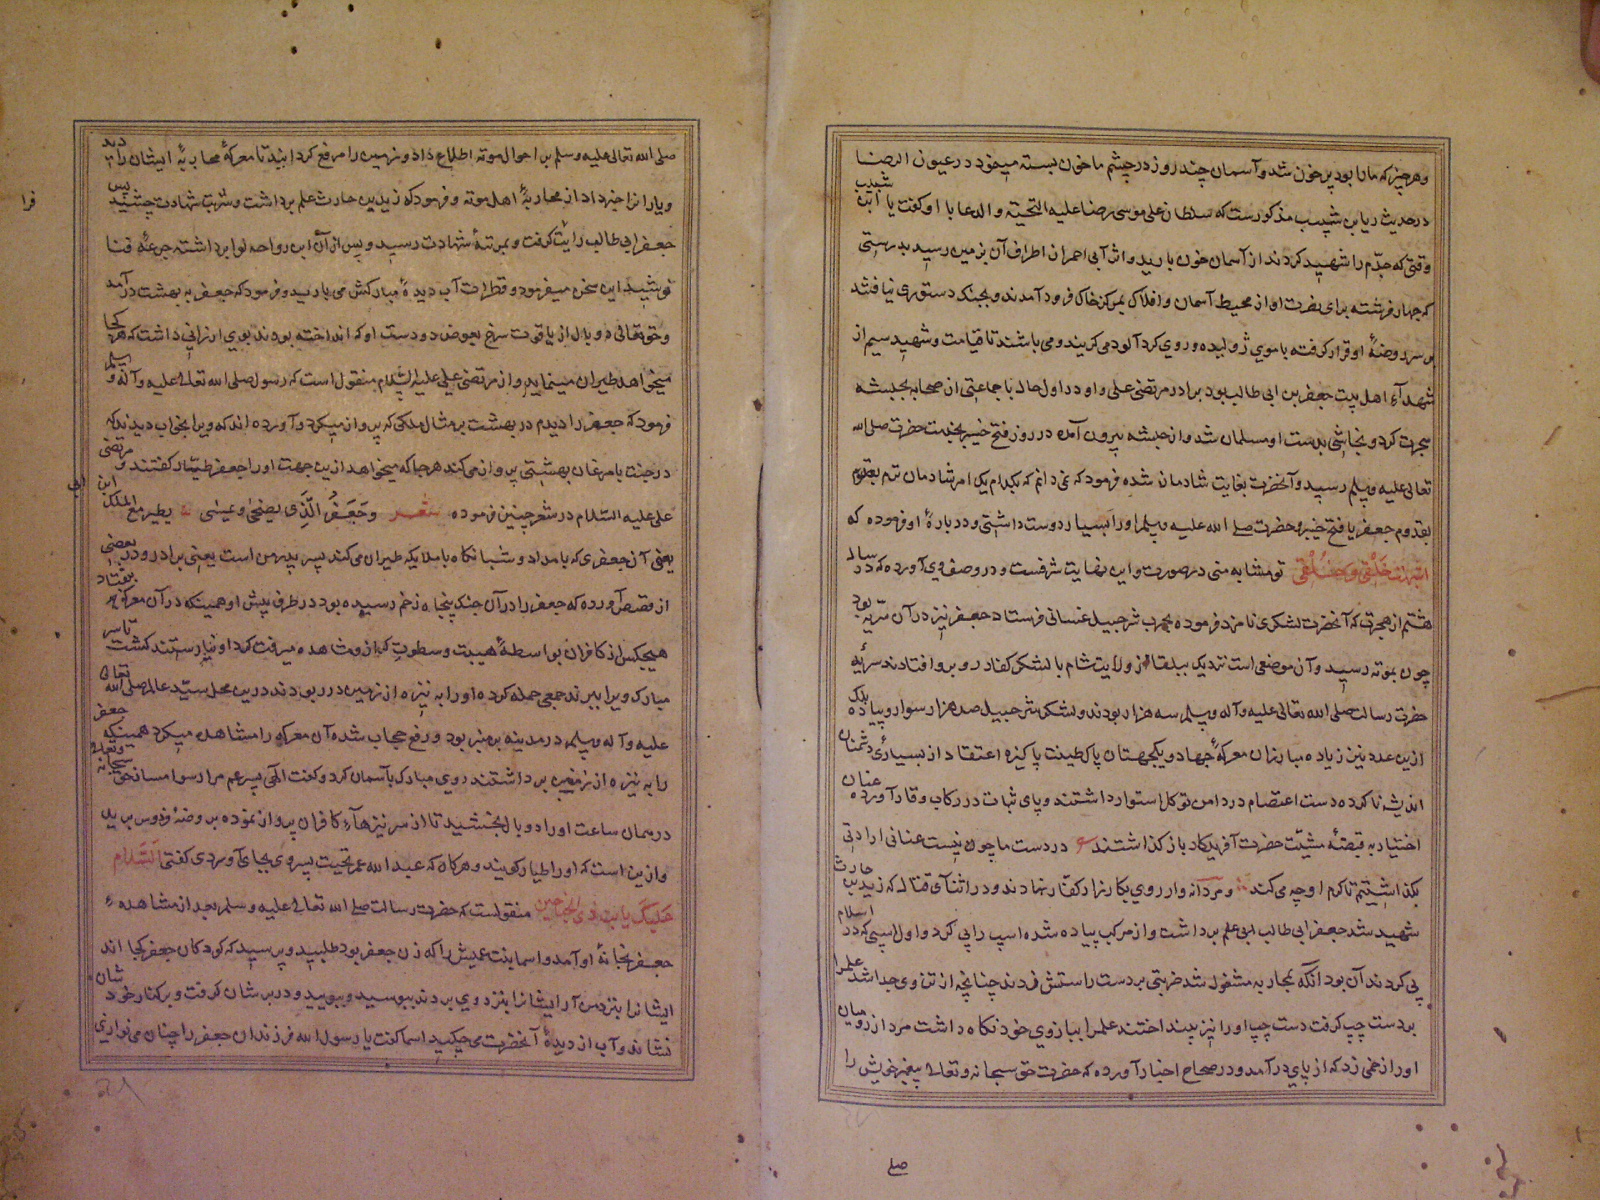 وهرچیز که مارا بود پر خون شد و آسمان چند روز در چشم ما خون بسته مینمود در عیون الرضا
در حدیث ریان بن شبیب مذکورست که سلطان علی موسی رضا علیه التحیة والدعا با او گفت یا ابن شبیب
وقتی که جدّم را شهید کردند از آسمان خون بارید و اثر آبی احمر از اطراف آن بزمین رسید بدرستی
که چهار فرشته برای نصرت او از محیط آسمان و افلاک بمرکز خاک فرود آمدند و بجنک دستوری نیافتند
بر سر روضهٔ او قرار گرفته با موی ژولیده و روی گرد آلود می گریند و می باشند تا قیامت و شهید سیم از
شهدآء اهل بیت جعفر بن ابی طالب بود برادر مرتضی علی و او در اول حال با جماعتی از صحابه بحبشه
هجرت کرد و نجاشی بدست او مسلمان شد و از حبشه بیرون آمده در روز فتح خیبر بخدمت حضرت صلی الله
تعالی علیه وسلم رسید و آنحضرت بغایت شادمان شده فرمود که نمی دانم که بکدام یک امر شادمان ترم
بقدوم جعفر یا فتح خیبر و حضرت صلی الله علیه وسلم او را بسیار دوست داشتی و در بارهٔ او فرموده که
اشبهت خَلْقی و خُلُقی تو مشابه منی در صورت و این نهایت شرفست و در وصف وی آورده که در سال
هشتم از هجرت که آنحضرت لشکری نامزد فرموده بحرب شرجبیل غسانی فرستاد جعفر نیز در آن سریه بود
چون بموته رسید و آن موضعی است نزدیک ببلقا از ولایت شام با لشکر کفار روبرو افتادند سریهٔ
حضرت رسالت صلی الله تعالی علیه وآله وسلم سه هزار بودند و لشکر شرجبیل صد هزار سوار و پیاده بلک
ازین عدد نیز زیاده مبارزان معرکهٔ جهاد و یکجهتان پاک طینت پاکیزه اعتقاد از بسیاری دشمنان
اندیشه ناکرده دست اعتصام در دامن توکل استوار داشتند و پای ثبات در رکاب وقار آورده عنان
اختیار به قبضهٔ مشیّت حضرت آفریدکار باز گذاشتند ع در دست ما چون نیست عنانی ارادتی
بگذاشتیم تا کرم او چه می کند و مردانه وار روی بکارزار کفار نهادند و در اثنآی قتال که زید بن حارث
شهید شد جعفر ابی طالب ابی علم برداشت و از مرکب پیاده شده اسپ را پی کرد و اول اسپی که در اسلام
پی کردند آن بود آنگه بمحاربه مشغول شد ضربتی بر دست راستش زدند چنانچه از تن وی جدا شد علم را
بر دست چپ گرفت دست چپ او را نیز بینداختند علم را ببازوی خود نگاه داشت مردی از رومیان
او را زخمی زد که از پای در آمد و در صحاح اخبار آورده که حضرت حق سبحانه و تعالی پیغمبر خویش را
صلی
صلی الله تعالی علیه وسلم بر احوال موته اطلاع داد و زمین را مرفع گردانید تا معرکهٔ محاربهٔ ایشان را دید
و یارانرا خبر داد از محاربهٔ اهل موته و فرمود که زید بن حارث علم برداشت و شربت شهادت چشید پس
جعفر ابی طالب رایت گرفت و بمرتبهٔ شهادت رسید و پس از آن ابن رواحه لوا برداشته جرعهٔ فنا
نوشید این سخن میفرمود و قطرات آب دیدهٔ مبارکش می بارید و فرمود که جعفر به بهشت در آمد
و حق تعالی دو بال از یاقوت سرخ بعوض دو دست او که انداخته بودند بوی ارزانی داشت که هر کجا
میخواهد طیران مینماید و از مرتضی علی علیه السّلام منقول است که رسول صلی الله تعالی علیه وآله وسلم
فرمود که جعفر را دیدم در بهشت بر مثال ملکی که پرواز میکرد و آورده اند که ویرا بخواب دیدند که
در جنت با مرغان بهشتی پرواز می کند هر جا که میخواهد ازین جهت او را جعفر طیّار گفتند و مرتضی
علی علیه السّلام در شعر چنین فرموده شعر وجَعْفَرُ الَّذی یضحی و یمسی یطیر مع الملک ابن امی
یعنی آن جعفری که بامداد و شبانگاه با ملایکه طیران می کند پسر پدر من است یعنی برادر و در بعضی
از قصص آورده که جعفر را در آن جنک پنجاه زخم رسیده بود در طرف پیش او همینکه در آن معرکه بیفتاد
هیچکس از کافران بواسطهٔ هیبت و سطوت که از وی مشاهده میرفت گرد او نیارستند گشت تا سر
مبارک ویرا ببرند جمعی حمله کرده او را به نیزه از زمین در ربودند درین محل سیّد عالم صلی الله تعالی
علیه وآله وسلم در مدینه بر منبر بود و رفع حجاب شده آن معرکه را مشاهده میکرد همینکه جعفر
را به نیزه از زمین برداشتند روی مبارک بآسمان کرد و گفت الهی پسر عم مرا رسوا مساز حق سبحانه وتعالی
در همان ساعت او را دو بال بخشید تا از سر نیزهآء کافران پرواز نموده بر روضهٔ فردوس پرید
و ازین است که او را طیار گویند و هر گاه که عبد الله عمر تحیت پسر وی بجای آوردی گفتی السَّلام
عَلیکَ یابن ذی الجناحین منقولست که حضرت رسالت صلی الله تعالی علیه وسلم بعد از مشاهدهء
جعفر بخانهٔ او آمد و اسما بنت عمیس را که زن جعفر بود طلبید و پرسید که کودکان جعفر کجا اند
ایشانرا بنزد من آر ایشانرا بنزد وی بردند ببوسید و ببویید و در بر شان گرفت و بر کنار خود شان
نشاند و آب از دیدهٔ آنحضرت می چکید اسما گفت یا رسول الله فرزندان جعفر را چنان می نوازی